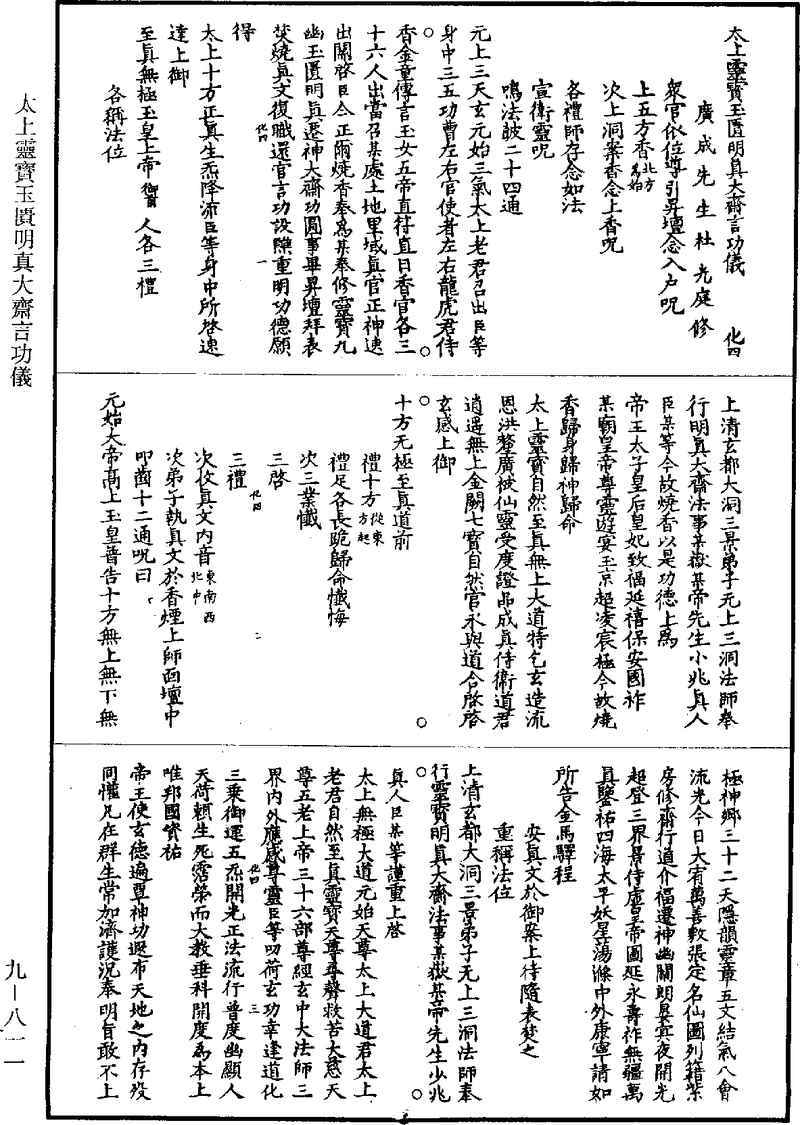 太上靈寶玉匱明真大齋言功儀
九—八一一
太上靈寶玉匱明真大齋言功儀 化四
廣成先生杜光庭修
眾官依位導引昇壇念入戶呪
上五方香北方為始
次上洞案香念上香呪
各禮師存念如法
宣衛靈呪
鳴法鼓二十四通
元上三天玄元始三氣太上老君召出臣等
身中三五功曹左右官使者左右龍虎君侍
香金童傳言玉女五帝直符直日香官各三
十六人出當召某處土地里域真官正神速
出關啓臣今正爾燒香奉為某奉修靈寶九
幽玉匱明真遷神大齋功圓事畢昇壇拜表
焚燒真文復職還官言功設醮重明功德願
得
太上十方正真生炁降流臣等身中所啓速
達上御
至真無極玉皇上帝 御前 人各三禮
各稱法位
上清玄都大洞三景弟子无上三洞法師奉
行明真大齋法事某嶽某帝先生小兆真人
臣某等今故燒香以是功德上為
帝王太子皇后皇妃致福延禧保安國祚
某廟皇帝尊靈遊宴玉京超凌宸極今故燒
香歸身歸神歸命
太上靈寶自然至真無上大道特乞玄造流
恩洪慈廣被仙靈受度證品成真侍衛道君
逍遥無上金闕七寶自然宮永與道合啓啓
玄感上御
十方无極至真道前
禮十方從東方起
禮足各長跪歸命懺悔
次三業懺
三啓
三禮
次伎真文内音東南西北中
次弟子執真文於香煙上師面壇中
叩齒十二通呪曰
元始大帝高上玉皇普告十方無上無下無
極神鄉三十二天隱韻靈章五文結氣八會
流光今日大宥萬善敷張定名仙圖列籍紫
房修齋行道介福遷神幽關朗晨冥夜開光
超登三界景侍虛皇帝圖延永壽祚無疆萬
真鑒祐四海太平妖星蕩滌中外康寧請如
所告金馬驛程
安真文於御案上待隨表焚之
重稱法位
上清玄都大洞三景弟子无上三洞法師奉
行靈寶明真大齋法事某嶽某帝先生少兆
真人臣某等謹重上啓
太上無極大道元始天尊太上大道君太上
老君自然至真靈寶天尊尋聲救苦大慈天
尊五老上帝三十六部尊經玄中大法師三
界内外應感尊靈臣等叨荷玄功幸逢道化
三乘御運五炁開光正法流行普度幽顯人
天荷賴生死霑榮而大教垂科開度為本上
唯邦國資祐
帝王使玄德遍覃神功遐布天地之内存殁
同懽凡在群生常加濟護況奉明旨敢不上